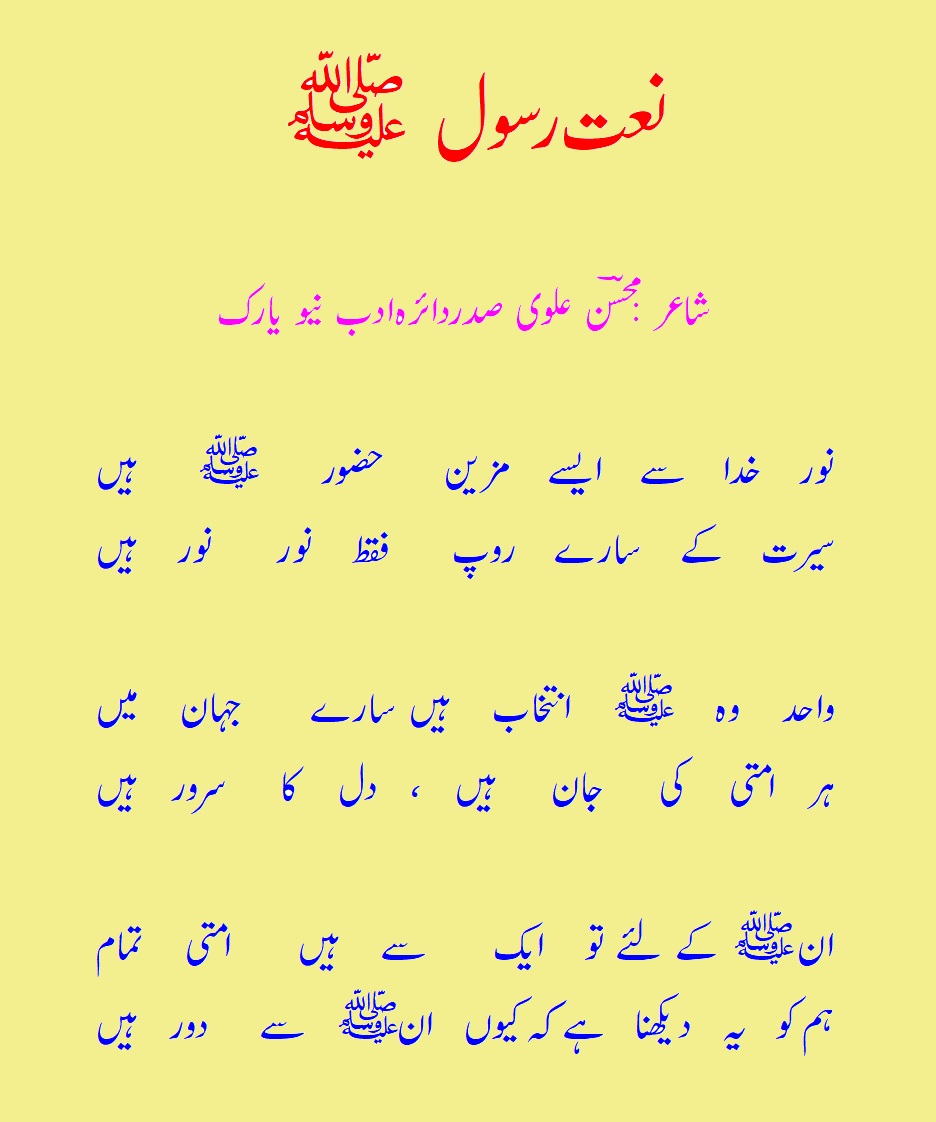 نعت رسول ﷺ
شاعر محسنؔ علوی صدر دائرہ ادب نیو یارک
نور خدا سے ایسے مزین حضور ﷺ ہیں
سیرت کے سارے روپ فقط نور نور ہیں
واحد وہ ﷺ انتخاب ہیں سارے جہان میں
ہر امتی کی جان ہیں ، دل کا سرور ہیں
ان ﷺ کے لئے تو ایک سے ہیں امتی تمام
ہم کو یہ دیکھنا ہے کہ کیوں ان ﷺ سے دور ہیں